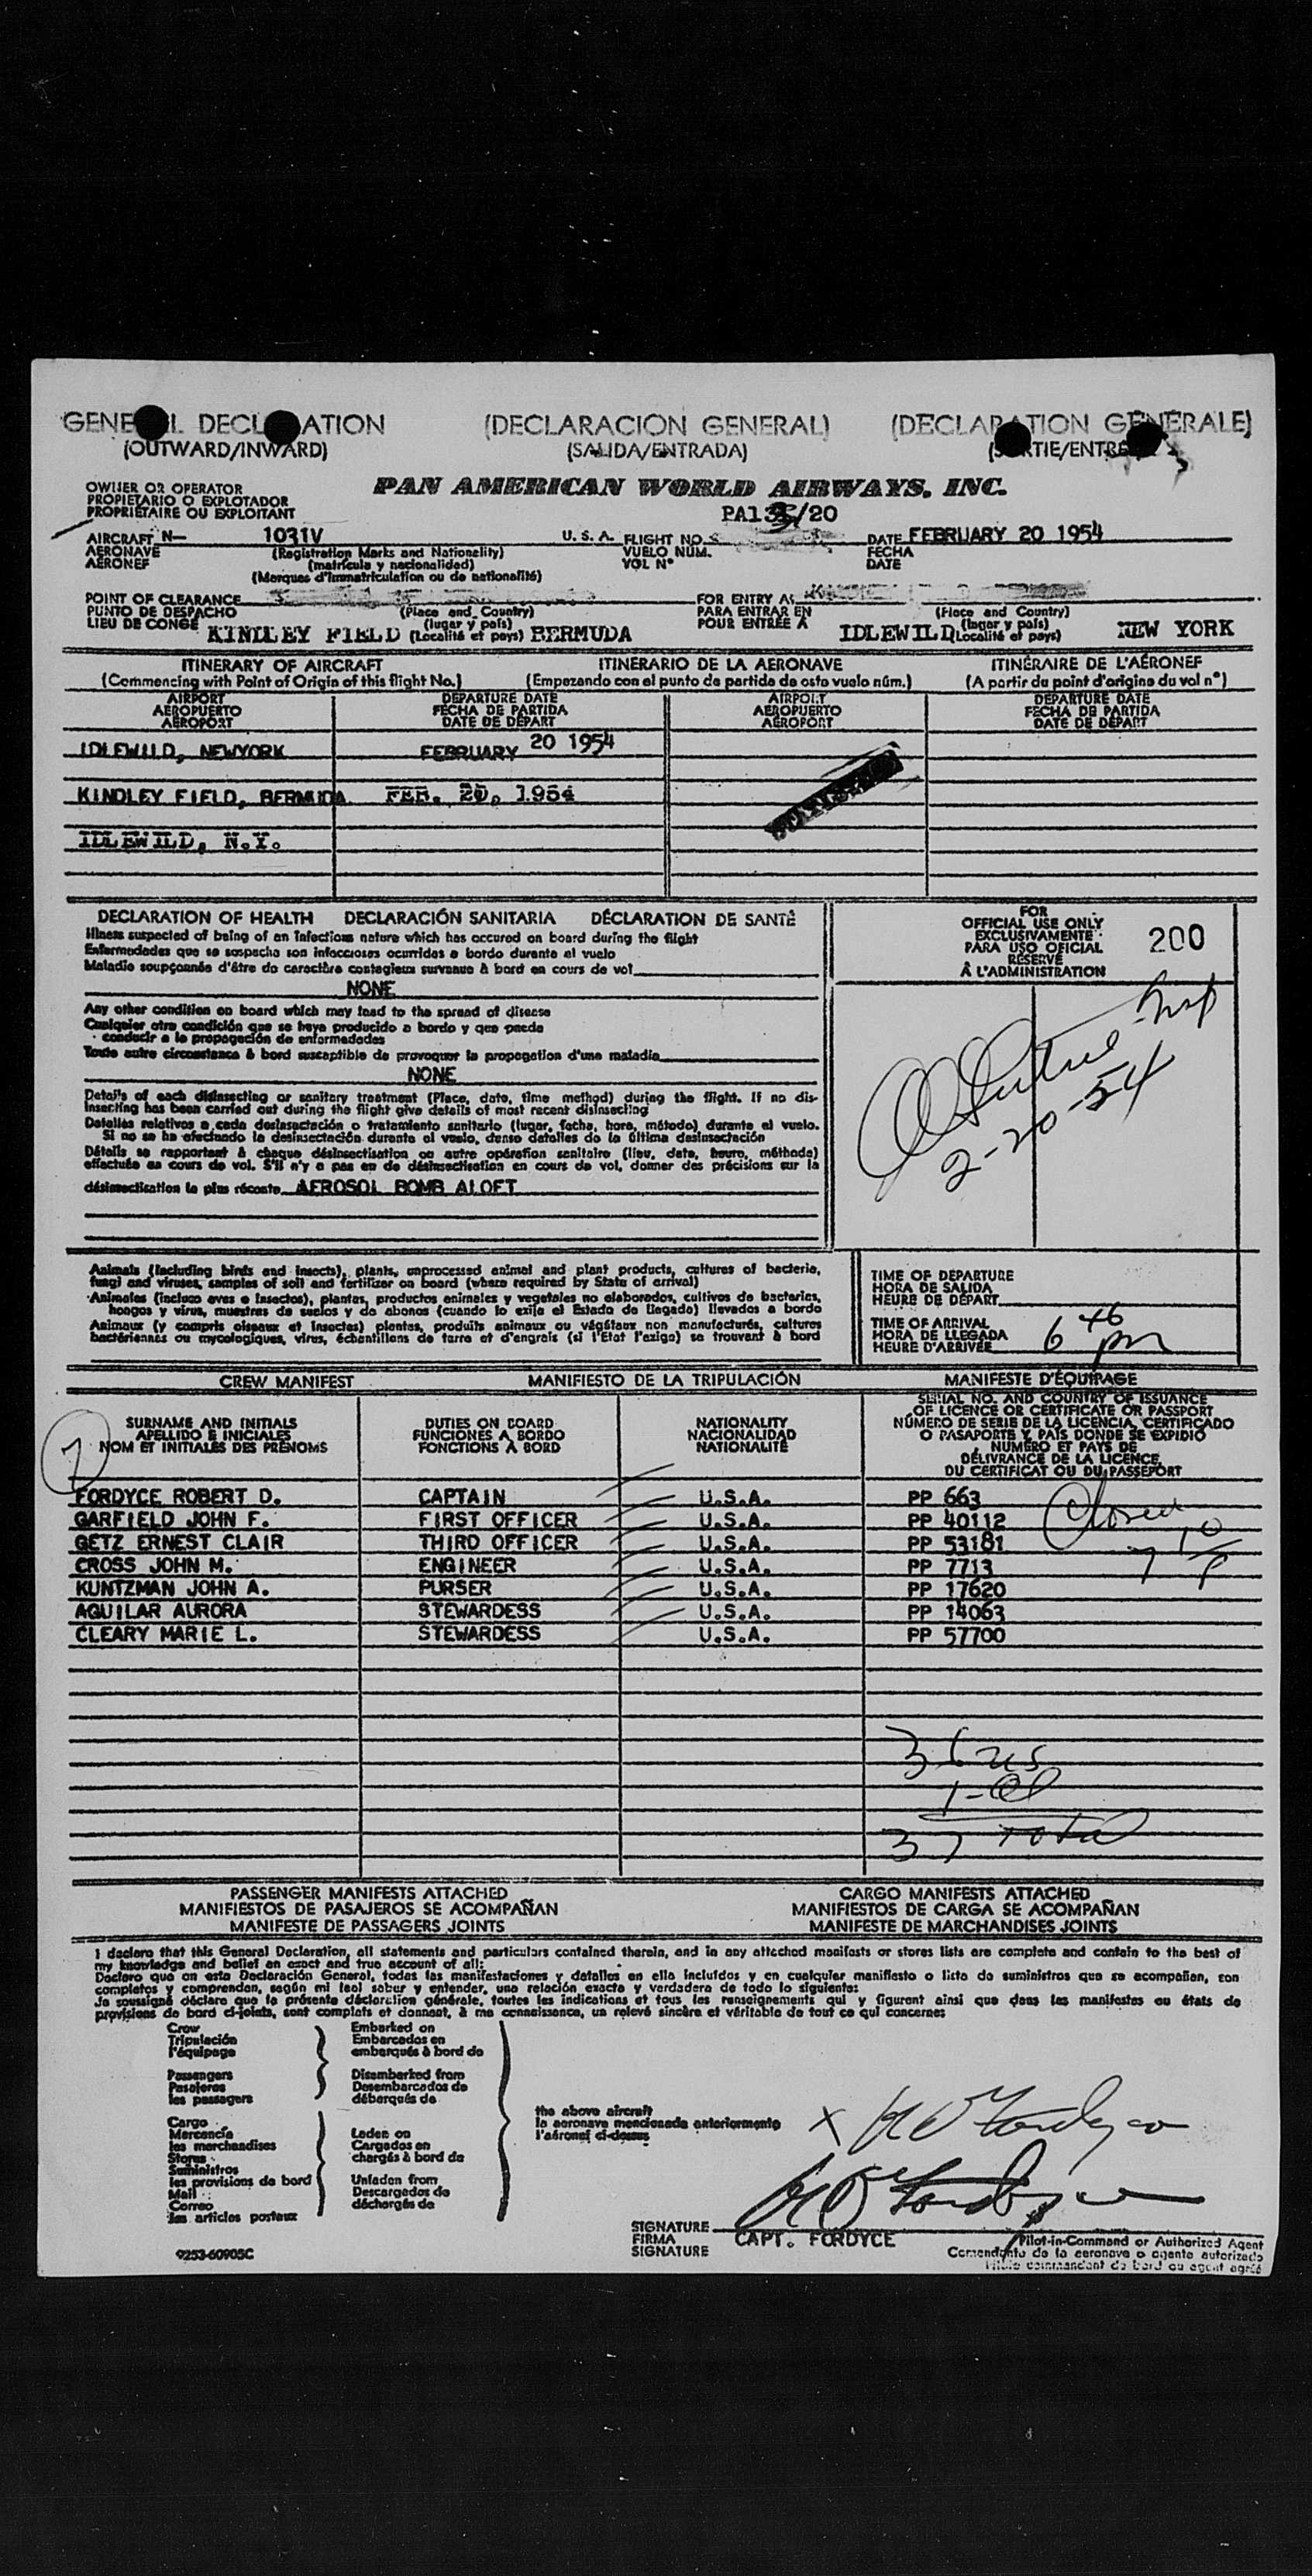 GENE L DECL ATION (DECLARACION GENERAL) (DECLARATION GÉNÉRALE)
(OUTWARD/INWARD) (SALIDA/ENTRADA) (S RTIE/ENTRÉE
OWNER OR OPERATOR
PROPIETARIO O EXPLOTADOR
PROPRIÉTAIRE OU EXPLOITANT
PAN AMERICAN WORLD AIRWAYS, INC.
/20
AIRCRAFT N— 1031V U. S. A. FLIGHT NO. DATE FEBRUARY 20 1954
AERONAVE (Registration Marks and Nationality) VUELO NÚM. FECHA
AÉRONEF (matrícula y nacionalidad) VOL N° DATE
(Marques d'immatriculation ou de nationalité)
POINT OF CLEARANCE FOR ENTRY AT
PUNTO DE DESPACHO (Place and Country) PARA ENTRAR EN (Place and Country)
LIEU DE CONGÉ (lugar y país) POUR ENTRÉE A (lugar y país)
KINDLEY FIELD (Localité et pays) BERMUDA IDLEWILD (Localité et pays) NEW YORK
ITINERARY OF AIRCRAFT ITINERARIO DE LA AERONAVE ITINÉRAIRE DE L'AÉRONEF
(Commencing with Point of Origin of this flight No.) (Empezando con el punto de partida de este vuelo núm.) (A partir du point d'origine du vol n°)
AIRPORT DEPARTURE DATE AIRPORT DEPARTURE DATE
AEROPUERTO FECHA DE PARTIDA AEROPUERTO FECHA DE PARTIDA
AÉROPORT DATE DE DÉPART AÉROPORT DATE DE DÉPART
IDLEWILD, NEWYORK FEBRUARY 20 1954
KINDLEY FIELD, BERMUDA FEB. 20, 1954
IDLEWILD, N.Y.
DECLARATION OF HEALTH DECLARACIÓN SANITARIA DÉCLARATION DE SANTÉ
Illness suspected of being of an infectious nature which has occured on board during the flight
Enfermedades que se sospecha son infecciosas ocurridas a bordo durante el vuelo
Maladie soupçonnée d'être de caractère contagieux survenue à bord en cours de vol
NONE
Any other condition on board which may lead to the spread of disease
Cualquier otra condición que se haya producido a bordo y que pueda
conducir a la propagación de enfermedades
Toute autre circonstance à bord susceptible de provoquer la propagation d'une maladie
NONE
Details of each disinsecting or sanitary treatment (Place, date, time method) during the flight. If no dis-
insecting has been carried out during the flight give details of most recent disinsecting
Detalles relativos a cada desinsectación o tratamiento sanitario (lugar, fecha, hora, método) durante el vuelo.
Si no se ha efectuado la desinsectación durante el vuelo, dense detalles de la última desinsectación
Détails se rapportant à chaque désinsectisation ou autre opération sanitaire (lieu, date, heure, méthode)
effectuée au cours de vol. S'il n'y a pas eu de désinsectisation en cours de vol, donner des précisions sur la
désinsectisation la plus récente AEROSOL BOMB ALOFT
FOR
OFFICIAL USE ONLY
EXCLUSIVAMENTE
PARA USO OFICIAL
RÉSERVÉ
À L'ADMINISTRATION
200
Insp
2-20-54
Animals (including birds and insects), plants, unprocessed animal and plant products, cultures of bacteria,
fungi and viruses, samples of soil and fertilizer on board (where required by State of arrival)
Animales (incluso aves e insectos), plantas, productos animales y vegetales no elaborados, cultivos de bacterias,
hongos y virus, muestras de suelos y de abonos (cuando lo exija el Estado de llegada) llevados a bordo
Animaux (y compris oiseaux et insectes) plantes, produits animaux ou végétaux non manufacturés, cultures
bactériennes ou mycologiques, virus, échantillons de terre et d'engrais (si l'Etat l'exige) se trouvant à bord
TIME OF DEPARTURE
HORA DE SALIDA
HEURE DE DÉPART
TIME OF ARRIVAL
HORA DE LLEGADA
HEURE D'ARRIVÉE
6 46 pm
CREW MANIFEST MANIFIESTO DE LA TRIPULACIÓN MANIFESTE D'ÉQUIPAGE
7
SURNAME AND INITIALS
APELLIDO E INICIALES
NOM ET INITIALES DES PRÉNOMS
DUTIES ON BOARD
FUNCIONES A BORDO
FONCTIONS À BORD
NATIONALITY
NACIONALIDAD
NATIONALITÉ
SERIAL NO. AND COUNTRY OF ISSUANCE
OF LICENCE OR CERTIFICATE OR PASSPORT
NÚMERO DE SERIE DE LA LICENCIA, CERTIFICADO
O PASAPORTE Y PAÍS DONDE SE EXPIDIÓ
NUMÉRO ET PAYS DE
DÉLIVRANCE DE LA LICENCE,
DU CERTIFICAT OU DU PASSEPORT
FORDYCE ROBERT D. CAPTAIN U.S.A. PP 663
GARFIELD JOHN F. FIRST OFFICER U.S.A. PP 40112
GETZ ERNEST CLAIR THIRD OFFICER U.S.A. PP 53181
CROSS JOHN M. ENGINEER U.S.A. PP 7713
KUNTZMAN JOHN A. PURSER U.S.A. PP 17620
AGUILAR AURORA STEWARDESS U.S.A. PP 14063
CLEARY MARIE L. STEWARDESS U.S.A. PP 57700
Closed
7 10 P
36 US
1-
37 Total
PASSENGER MANIFESTS ATTACHED CARGO MANIFESTS ATTACHED
MANIFIESTOS DE PASAJEROS SE ACOMPAÑAN MANIFIESTOS DE CARGA SE ACOMPAÑAN
MANIFESTE DE PASSAGERS JOINTS MANIFESTE DE MARCHANDISES JOINTS
I declare that this General Declaration, all statements and particulars contained therein, and in any attached manifests or stores lists are complete and contain to the best of
my knowledge and belief an exact and true account of all:
Declaro que en esta Declaración General, todas las manifestaciones y detalles en ella incluídos y en cualquier manifiesto o lista de suministros que se acompañan, son
completos y comprenden, según mi leal saber y entender, una relación exacta y verdadera de todo lo siguiente:
Je soussigné déclare que la présente déclaration générale, toutes les indications et tous les renseignements qui y figurent ainsi que dans les manifestes ou états de
provisions de bord ci-joints, sont complets et donnent, à ma connaissance, un relevé sincère et véritable de tout ce qui concerne:
Crew Embarked on
Tripulación Embarcados en
l'équipage embarqués à bord de
Passengers Disembarked from
Pasajeros Desembarcados de
les passagers débarqués de
Cargo
Mercancía Laden on
les marchandises Cargados en
Stores chargés à bord de
Suministros
les provisions de bord Unladen from
Mail Descargados de
Correo déchargés de
les articles postaux
the above aircraft
la aeronave mencionada anteriormente
l'aéronef ci-dessus
X R D Fordyce
R D Fordyce
SIGNATURE
FIRMA
SIGNATURE
CAPT. FORDYCE
Pilot-in-Command or Authorized Agent
Comandante de la aeronave o agente autorizado
Pilote commandant de bord ou agent agréé
9253-60905C